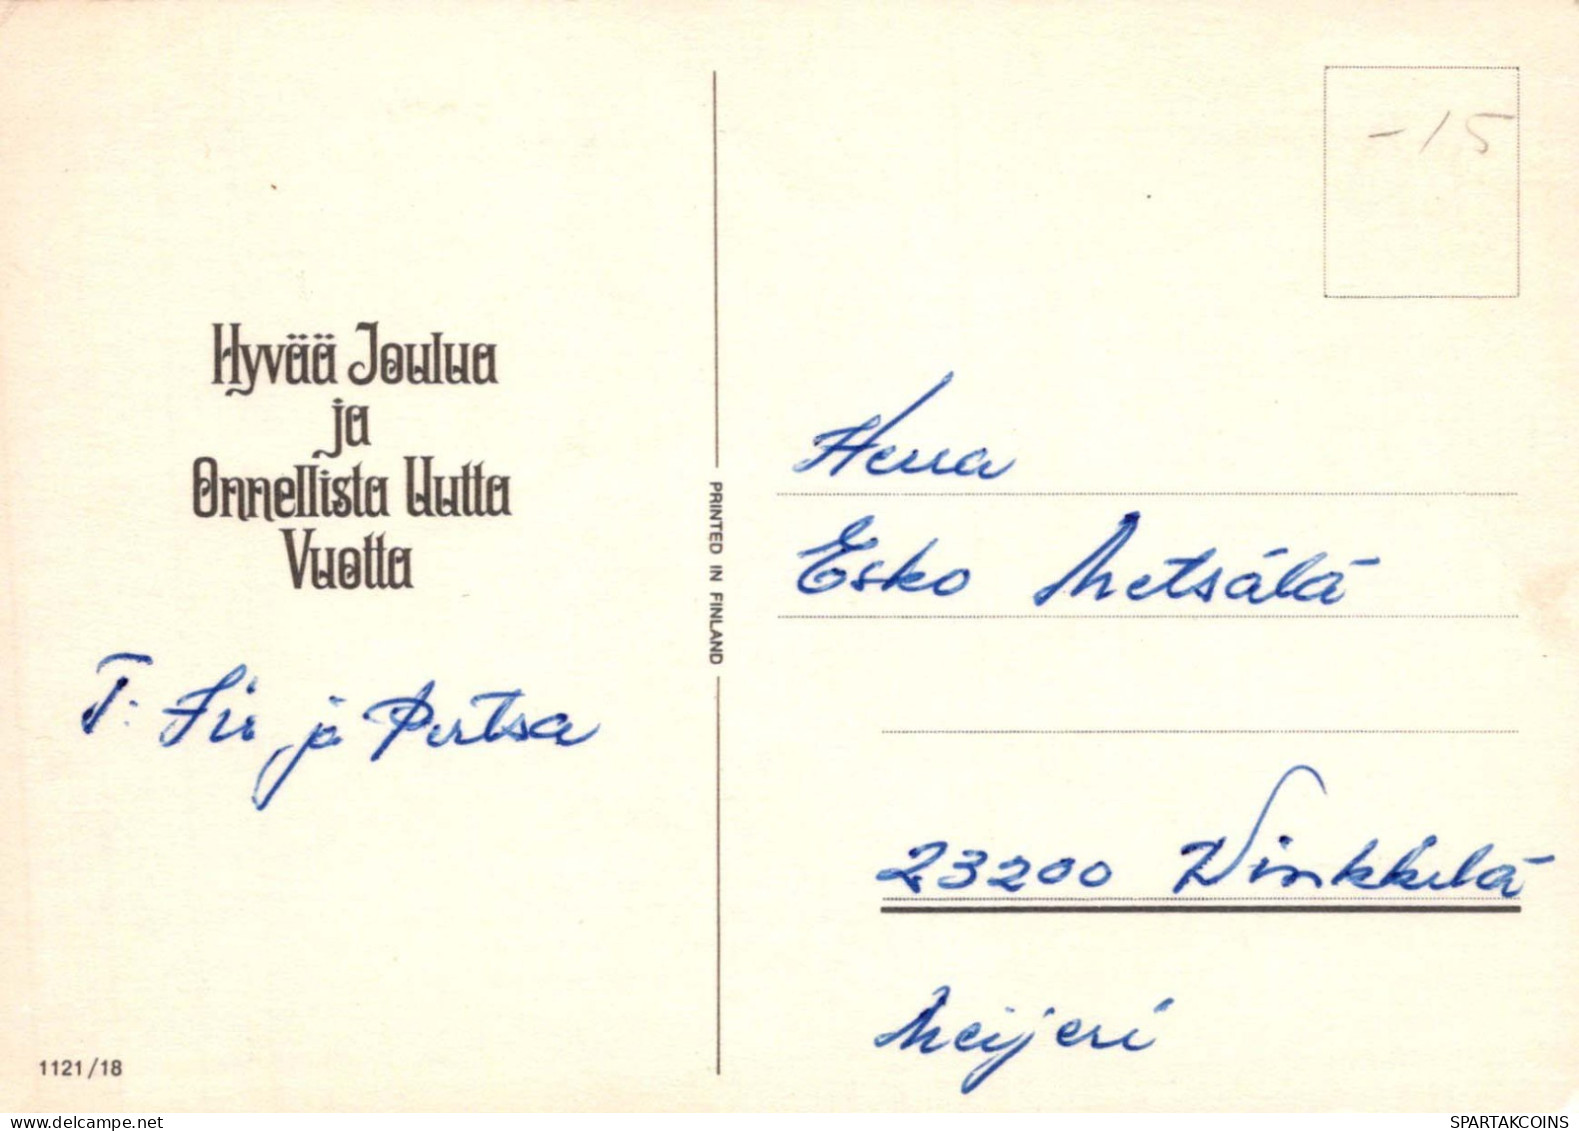 Hyvää Joulua
ja
Onnellista Uutta
Vuotta
T: Sir ja Pertsa
1121/18
PRINTED IN FINLAND
-15
Herra
Esko Metsälä
23200 Vinkkilä
Meijeri
SPARTAKCOINS